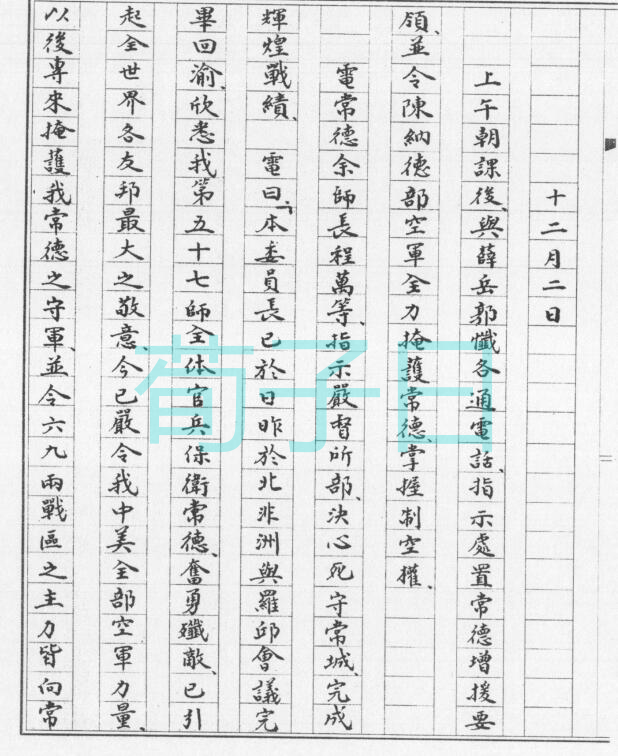 十二月二日
上午朝課後、與薛岳郭懺各通電話、指示處置常德增援要
領、並令陳納德部空軍全力掩護常德、掌握制空權、
電常德余師長程萬等、指示嚴督所部、決心死守常城、完成
輝煌戰績、電曰「本委員長已於日昨於北非洲與羅邱會議完
畢回渝、欣悉我第五十七師全体官兵保衛常德、奮勇殲敵、已引
起全世界各友邦最大之敬意、今已嚴令我中美全部空軍力量、
以後專來掩護我常德之守軍、並令六九兩戰區之主力皆向常
荀子曰